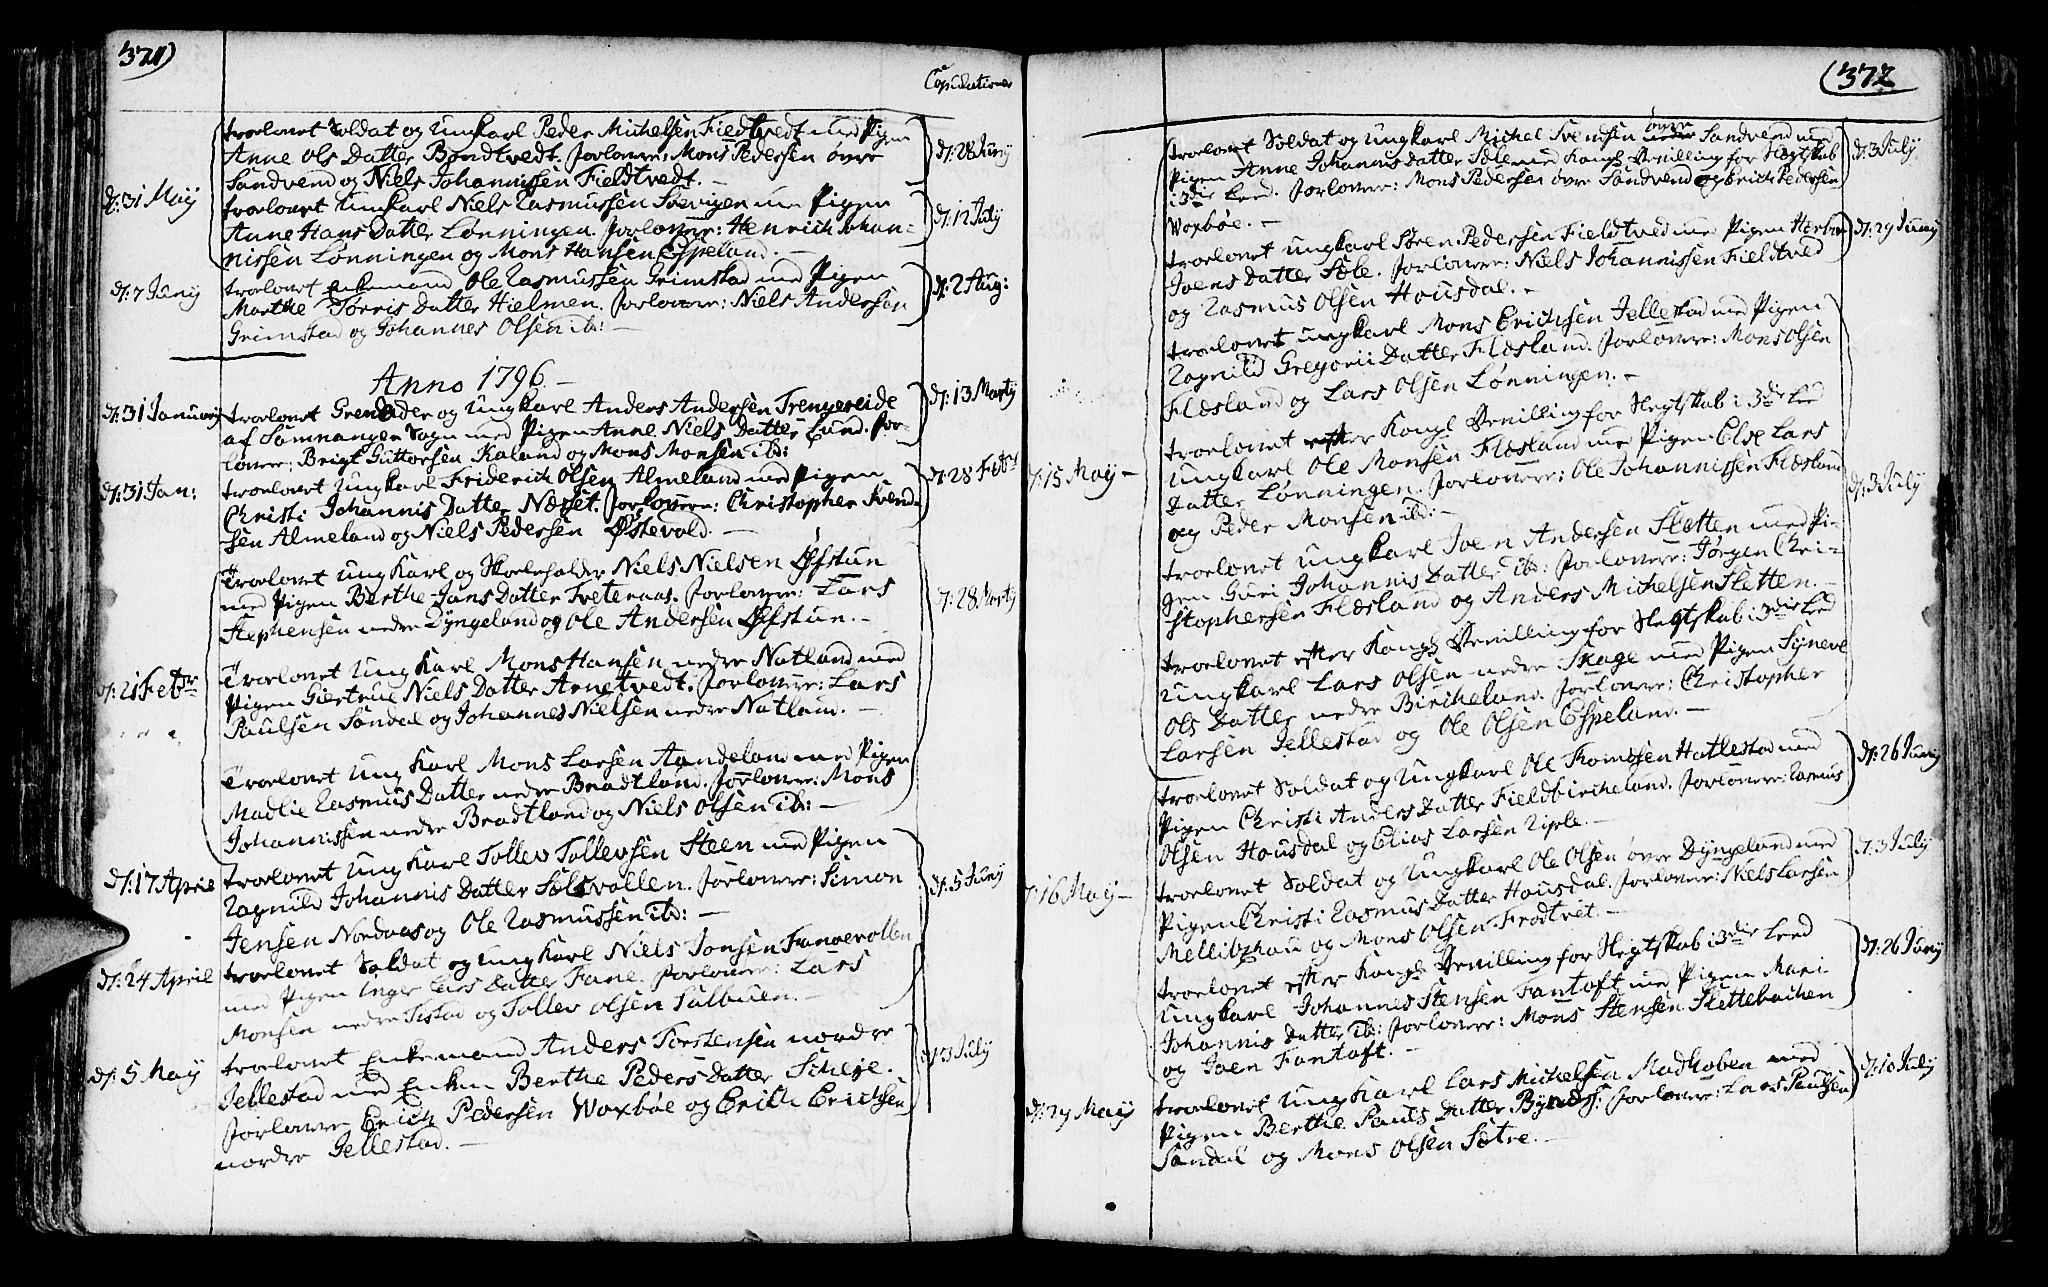 371)
Copulationes
trolovet Soldat og Ungkarl Peder Michelsen Fieldtvedt med Pigen
Anne Ols Datter Bondtvedt. Forlovere: Mons Pedersen øvre
Sandvend og Niels Johannissen Fieldtvedt. —
d: 28 Juny
d: 31 Maÿ
trolovet Ungkarl Niels Rasmussen med Pigen
Anne Hans Datter Lønningen. Forlovere: Henrich Johan-
nissen Lønningen og Mons Hansen Espeland. —
d: 12 July
d: 7 Juny
trolovet Enkemand Ole Rasmussen Grimstad med Pigen
Marthe Tørris Datter Hielmen. Forlovere: Niels Andersen
Grimstad og Johannes Olsen ib: —
d: 2 Aug:
Anno 1796 —
d: 31 Januarij
trolovet Grenader og Ungkarl Anders Andersen Trengereide
af Samnanger Sogn med Pigen Anne Niels Datter Lund. For-
lovere; Brigt Guttorsen Kaland og Mons Monsen ib:
d: 13 Martij
d: 31 Jan:
trolovet Ungkarl Friderich Olsen Almeland med Pigen
Christi Johannis Datter Næset. Forlovere: Christopher Svend-
sen Almeland og Niels Pedersen Østevold. —
d: 28 Febr
Trolovet Ungkarl og Skoleholder Niels Nielsen Øfstun
med Pigen Berthe Jans Datter Treteraas. Forlovere: Lars
Stephensen nedre Dyngeland og Ole Andersen Øfstun. —
d: 28 Martij
d: 21 Febr
Trolovet Ungkarl Mons Hansen nedre Natland med
Pigen Giertrue Niels Datter Arnetvedt. Forlovere: Lars
Paulsen Sandal og Johannes Nielsen nedre Natland. —
Trolovet Ungkarl Mons Larsen Aandeland med Pigen
Madlie Rasmus Datter nedre Bradtland. Forlovere: Mons
Johannissen nedre Bradtland og Niels Olsen ib: —
d: 17 April
trolovet Ungkarl Tollev Tollevsen Steen med Pigen
Ragnild Johannis Datter Solsvollen. Forlovere: Simon
Jensen Nordaas og Ole Rasmussen ib: —
d: 5 Juny
d: 24 April
trolovet Soldat og Ungkarl Niels Jonsen Fanevollen
med Pigen Inger Lars Datter Fane. Forlovere: Lars
Monsen nedre Tistad og Tollev Olsen Sulbuen. —
d: 5 Maÿ
trolovet Enkemand Anders Torstensen nordre
Jellestad med Enken Berthe Peders Datter Scheje.
Forlovere Erich Pedersen Woxbøe og Erich Erichsen
nordre Jellestad. —
d: 3 July
(372
trolovet Soldat og Ungkarl Michel Svendsen øvre Sandvend med
Pigen Anne Johannis Datter Søle med Kongl Bevilling for Slegtskab
i 3die Leed. Forlovere: Mons Pedersen øvre Sandvend og Erich Pedersen
Woxbøe. —
d: 3 July
trolovet Ungkarl Søren Pedersen Fieldtved med Pigen Herbor
Joens Datter Søle. Forlovere: Niels Johannissen Fieldtved
og Rasmus Olsen Housdal. —
d: 29 Juny
trolovet Ungkarl Mons Erichsen Jellestad med Pigen
Ragnild Gregorii Datter Flæsland. Forlovere: Mons Olsen
Flæsland og Lars Olsen Lønningen. —
d: 15 Maÿ —
trolovet efter Kongl Bevilling for Slegtskab i 3die Led
Ungkarl Ole Monsen Flæsland med Pigen Else Lars
Datter Lønningen. Forlovere: Ole Johannissen Flæsland
og Peder Monsen ib: —
d: 3 July
trolovet Ungkarl Joen Andersen Sletten med Pi-
gen Guri Johannis Datter ib: Forlovere: Jørgen Chri-
stophersen Flæsland og Anders Michelsen Sletten. —
trolovet efter Kongl Bevilling for Slegtskab i 3die Led
Ungkarl Lars Olsen nedre Skage med Pigen Syneve
Ols Datter nedre Bircheland. Forlovere: Christopher
Larsen Jellestad og Ole Olsen Espeland. —
trolovet Soldat og Ungkarl Ole Thomæsen Hatlestad med
Pigen Christi Anders Datter Fieldbircheland. Forlovere: Rasmus
Olsen Housdal og Elias Larsen Riple. —
d: 26 Juny
d: 16 Maÿ —
trolovet Soldat og Ungkarl Ole Olsen øvre Dyngeland med
Pigen Christi Rasmus Datter Housdal. Forlovere: Niels Larsen
Mellibshau og Mons Olsen Frotvet. —
d: 3 July
trolovet efter Kongl Bevilling for Slegtskab i 3die Leed
Ungkarl Johannes Stensen Fantoft med Pigen Mari
Johannis Datter ib: Forlovere: Mons Stensen Slettebachen
og Joen Fantoft. —
d: 26 Juny
d: 29 Maÿ
trolovet Ungkarl Lars Michelsen Madhoben med
Pigen Berthe Pauls Datter Byndss: Forlovere: Lars Paulsen
Sandal og Mons Olsen Sætre. —
d: 10 July